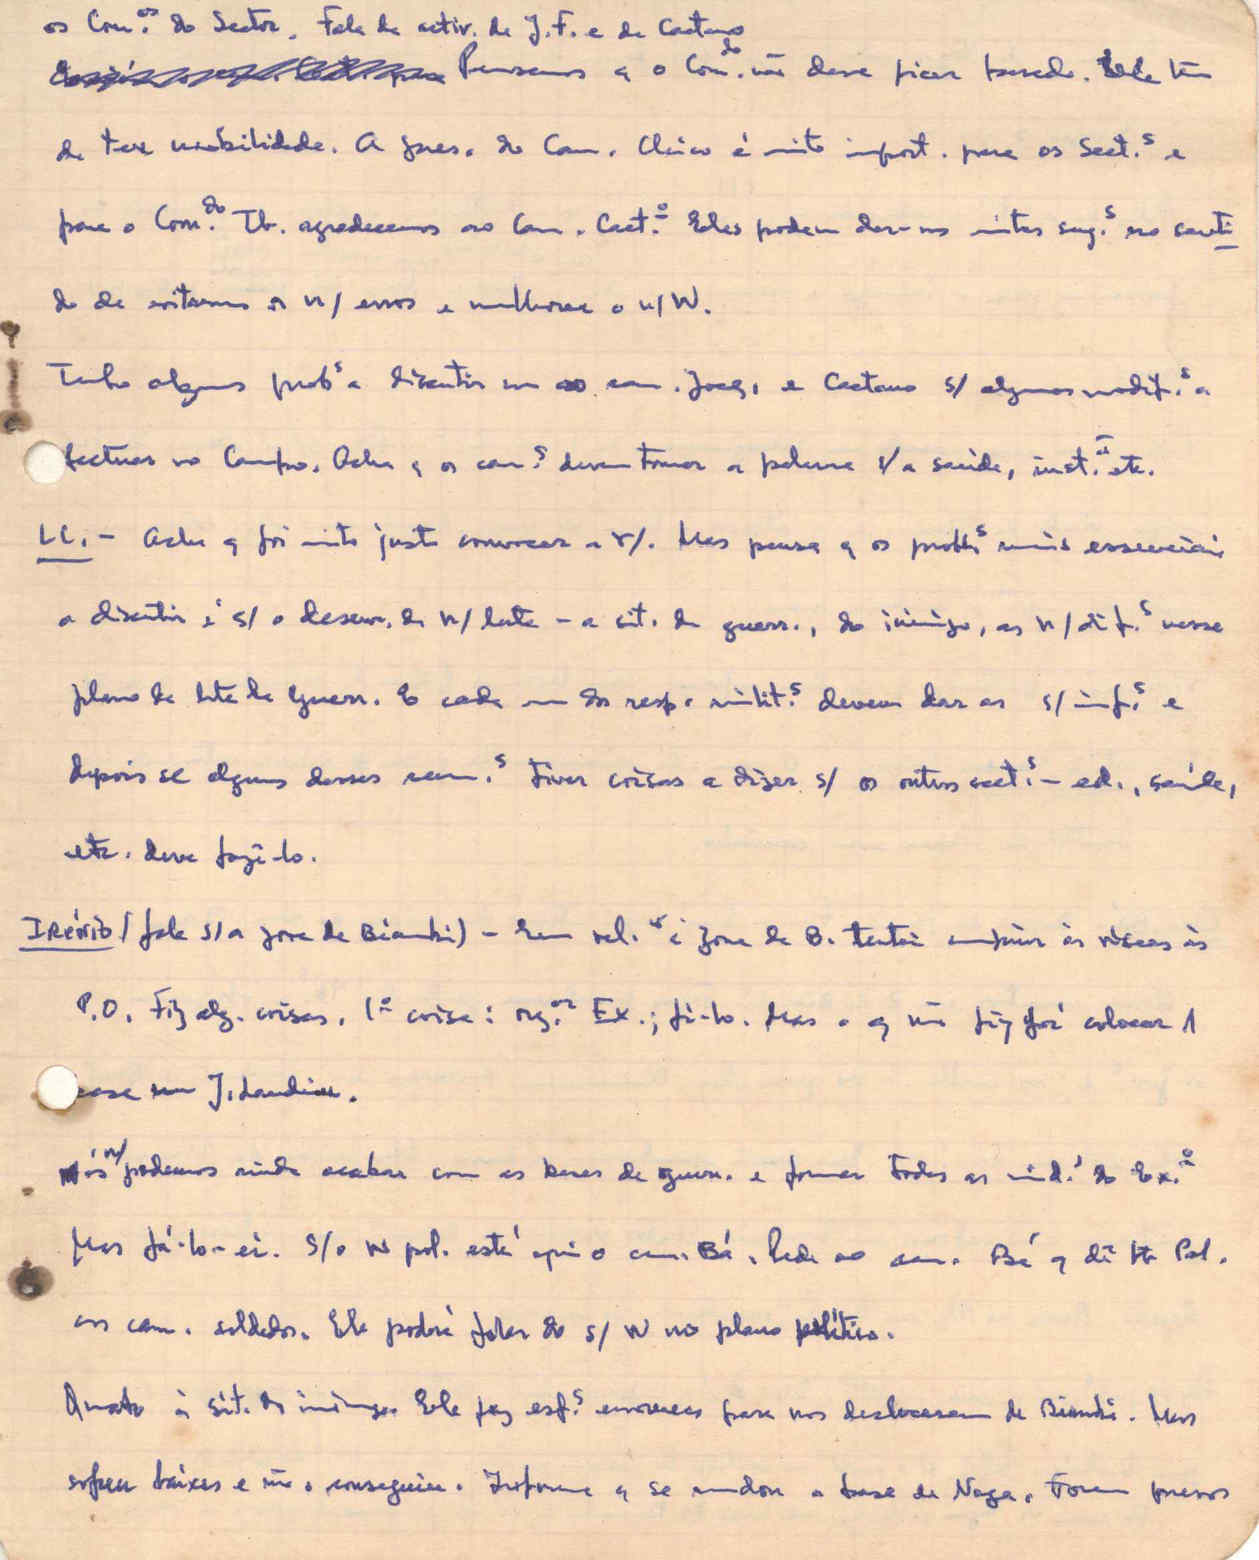 os Com.os do Sector. Fala da activ. de J.F. e de Caetano
Pensamos q o Com.do não deve ficar parado. Ele tem
de ter mobilidade. A pres. do Cam. Chico é mito import. para os Sect.s e
para o Com.do Tb. agradecemos ao Cam. Caet.o Eles podem dar-nos mitas sug.s no senti
do de evitarmos os n/ erros e melhorar o n/W.
Tenho alguns probs a discutir com cam. Joaq. e Caetano s/ algumas modif.s a
fectuar no Campo. Acha q os cam.s devem tomar a palavra s/a saúde, inst.ão etc.
LC. - Acha q foi mito justo convocar a r/. Mas pensa q os probls mais essenciais
a discutir é s/ o desenv. da n/ luta - a sit. da guerr., do inimigo, as n/ dif.s nesse
plano da luta de guerr. E cada um dos resp. milit.s devem dar as s/ inf.s e
depois se alguns desses cam.s tiver coisas a dizer s/ os outros sect.s - ed., saúde,
etc. deve fazê-lo.
IRÉNIO (fala s/a zona de Biambi) - Em rel.ão à zona de B. tentei cumprir às riscas as
P.O. Fiz alg. coisas. 1ª coisa: org.ar Ex.; fi-lo. Mas o q não fiz foi colocar 1
base em J. Landim.
Nós n/ podemos ainda acabar com as bases de guerr. e formar todas as unid.s do Ex.o
Mas fá-lo-ei. S/o W pol. está aqui o cam. Bá. Pede ao cam. Bá q dê W Pol.
aos cam. soldados. Ele poderá falar do s/ W no plano político.
Quanto à sit. do inimigo. Ele faz esf.s enormes para nos deslocarem de Biambi. Mas
sofreu baixas e não o conseguiu. Informa q se mudou a base de Naga. Foram presos